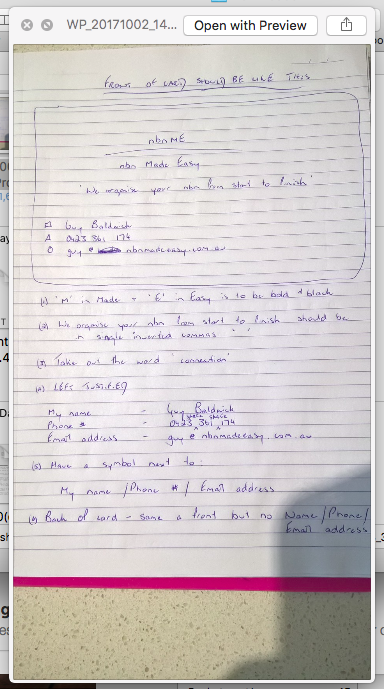 WP_20171002_14... Open with Preview
FRONT OF CARD SHOULD BE LIKE THIS
nbn ME
nbn Made Easy
'We organise your nbn from start to finish'
Guy Baldwick
A 0423 361 174
O guy @ nbnmadeeasy.com.au
(1) 'M' in Made + 'E' in Easy is to be bold + black
(2) We organise your nbn from start to finish should be
in single inverted commas ' '
(3) Take out the word 'connection'
(4) LEFT JUSTIFIED
My name - Guy Baldwick
space space
Phone # - 0423 361 174
Email address - guy @ nbnmadeeasy.com.au
(5) Have a symbol next to:
My name / Phone # / Email address
(6) Back of card - same as front but no Name / Phone /
Email address